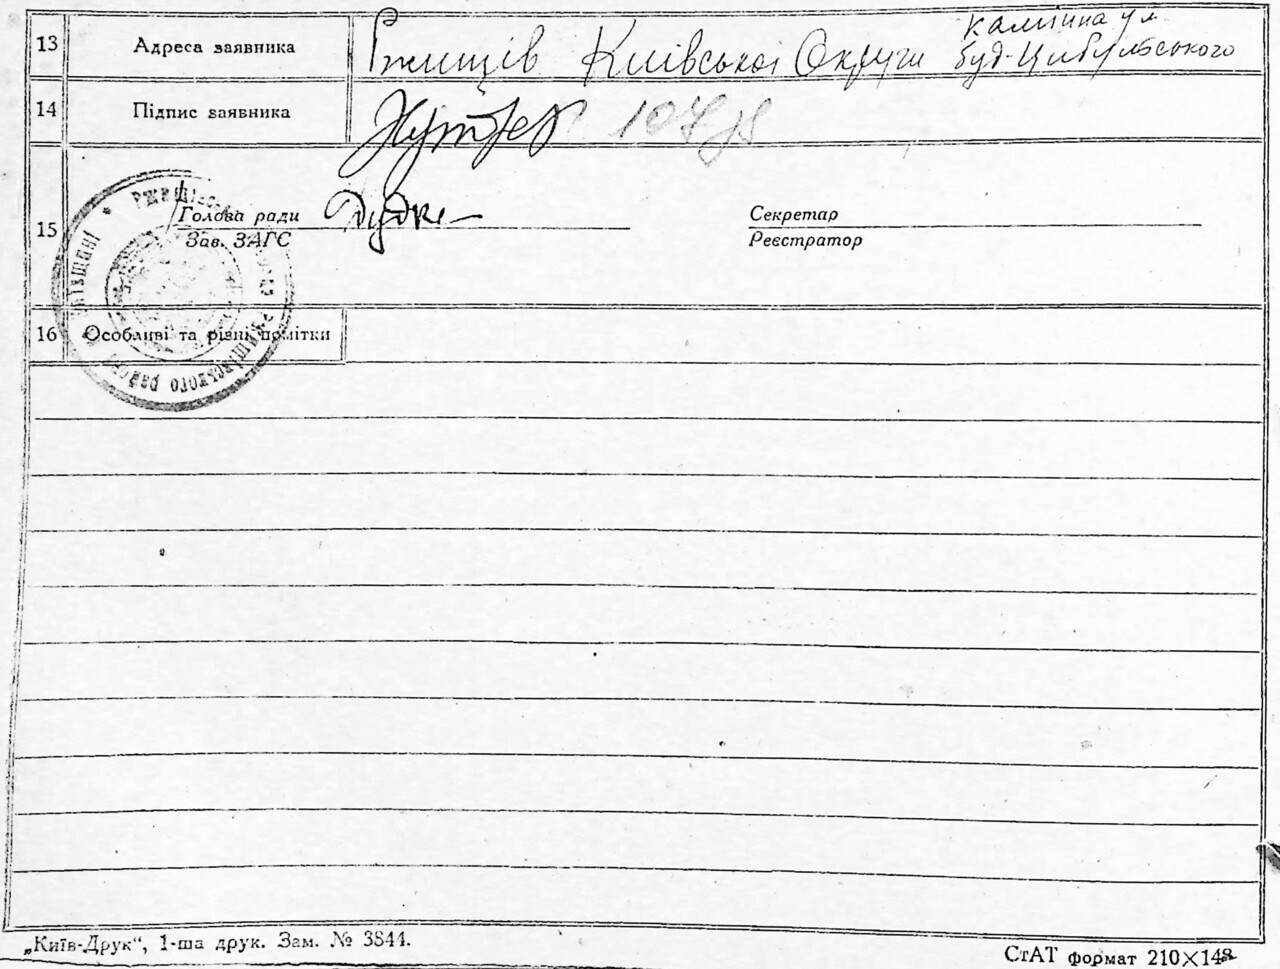 13 Адреса заявника Ржищів Київської Округи Калініна ул.
буд. Цибульського
14 Підпис заявника
15 Голова ради Секретар
Зав. ЗАГС Реєстратор
16 Особливі та різні помітки
„Київ-Друк“, 1-ша друк. Зам. № 3844. СтАТ формат 210×148